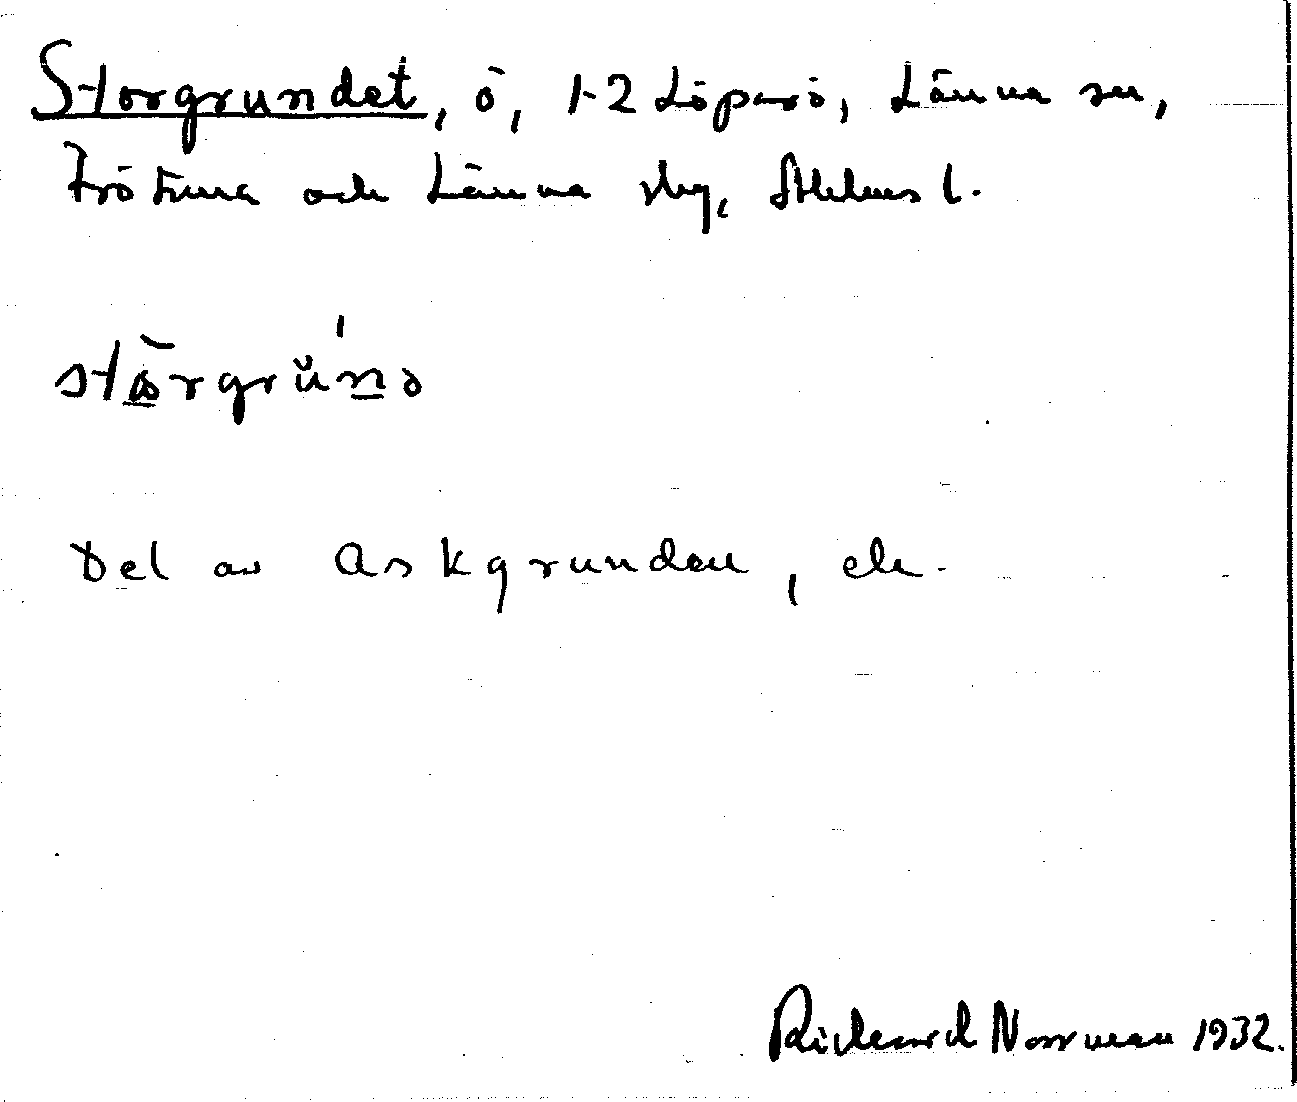 Storgrundet, ö, 1-2 Löparö, Länna sn,
Frötuna och Länna slg, Sthlms l.
stårgrŭ́nə
Del av Askgrunden, ele.
Richard Norrman 1932.